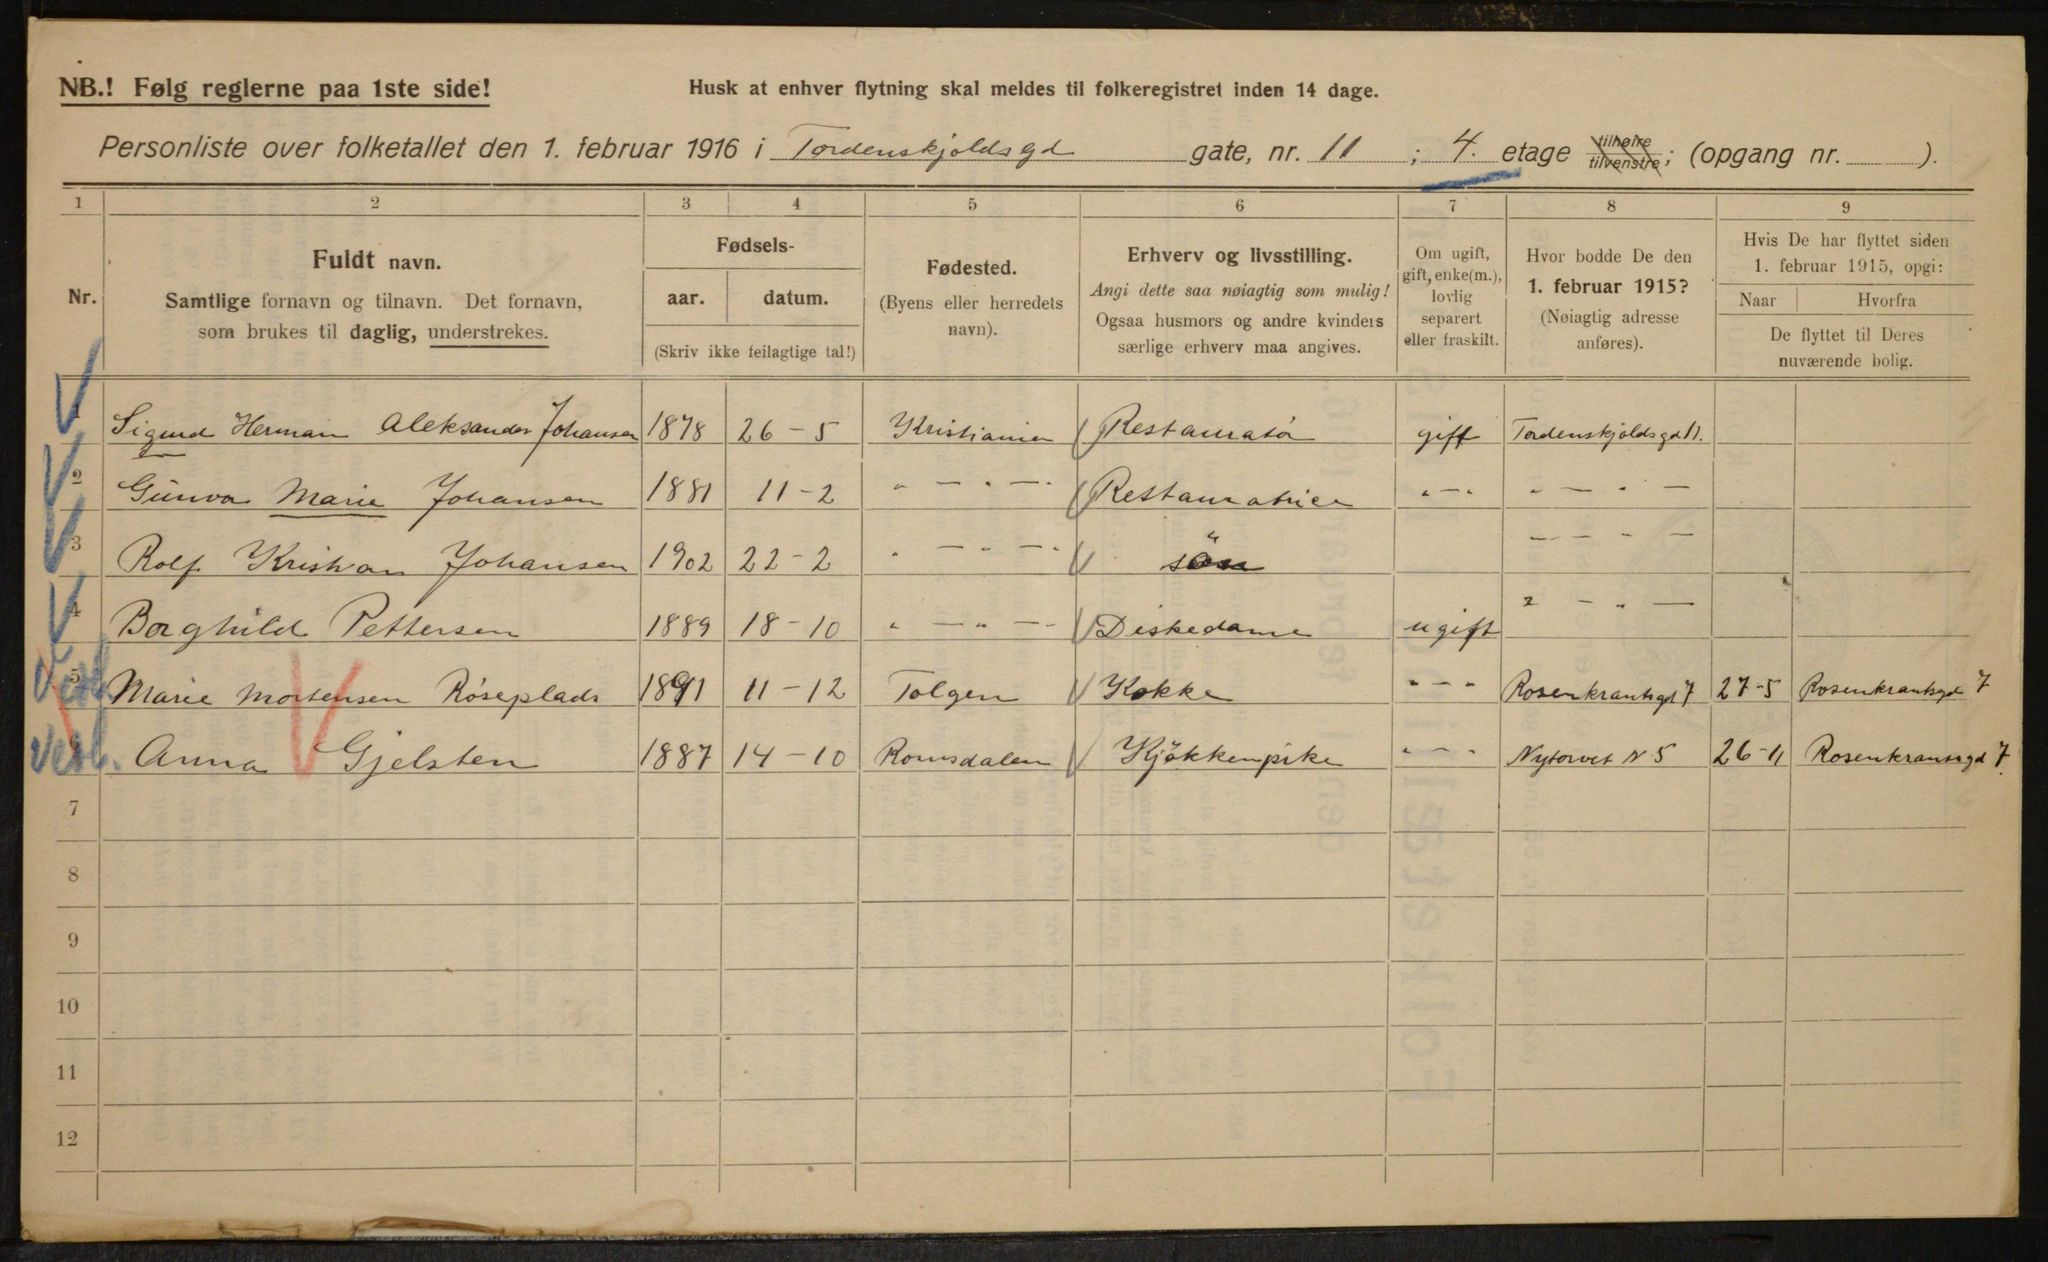 NB.! Følg reglerne paa 1ste side!
Husk at enhver flytning skal meldes til folkeregistret inden 14 dage.
Personliste over folketallet den 1. februar 1916 i Tordenskjoldsgd gate, nr. 11 ; 4. etage tilhøire tilvenstre; (opgang nr. ).
1 2 3 4 5 6 7 8 9
Nr.
Fuldt navn.
Samtlige fornavn og tilnavn. Det fornavn,
som brukes til daglig, understrekes.
Fødsels-
aar. datum.
(Skriv ikke feilagtige tal!)
Fødested.
(Byens eller herredets
navn).
Erhverv og livsstilling.
Angi dette saa nøiagtig som mulig!
Ogsaa husmors og andre kvinders
særlige erhverv maa angives.
Om ugift,
gift, enke(m.),
lovlig
separert
eller fraskilt.
Hvor bodde De den
1. februar 1915?
(Nøiagtig adresse
anføres).
Hvis De har flyttet siden
1. februar 1915, opgi:
Naar Hvorfra
De flyttet til Deres
nuværende bolig.
1 Sigurd Herman Aleksander Johansen 1878 26-5 Kristiania Restauratør gift Tordenskjoldsgd 11.
2 Gunvor Marie Johansen 1881 11-2 " — " — Restauratrice " — " " — " —
3 Rolf Kristian Johansen 1902 22-2 " — " — søn " — " —
4 Borghild Pettersen 1889 18-10 " — " — Diskedame ugift " — " —
5 Marie Mortensen Røseplads 1891 11-12 Tolgen Kokke " — " Rosenkrantsgd 7 27-5 Rosenkrantsgd 7
6 Anna Gjelsten 1887 14-10 Romsdalen Kjøkkenpike " — " Nytorvet N 5 26-11 Rosenkrantsgd 7.
7
8
9
10
11
12